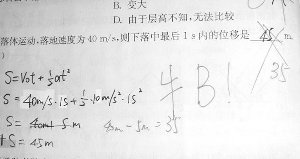 B. 变大
D. 由于层高不知,无法比较
落体运动,落地速度为 40 m/s,则下落中最后 1 s 内的位移是 45 m.
)
35
S=V₀t+½at²
S = 40m/s·1S+½·10m/s²·1S²
牛B!
S = 40m+5m
40m-5m=35
+S=45m